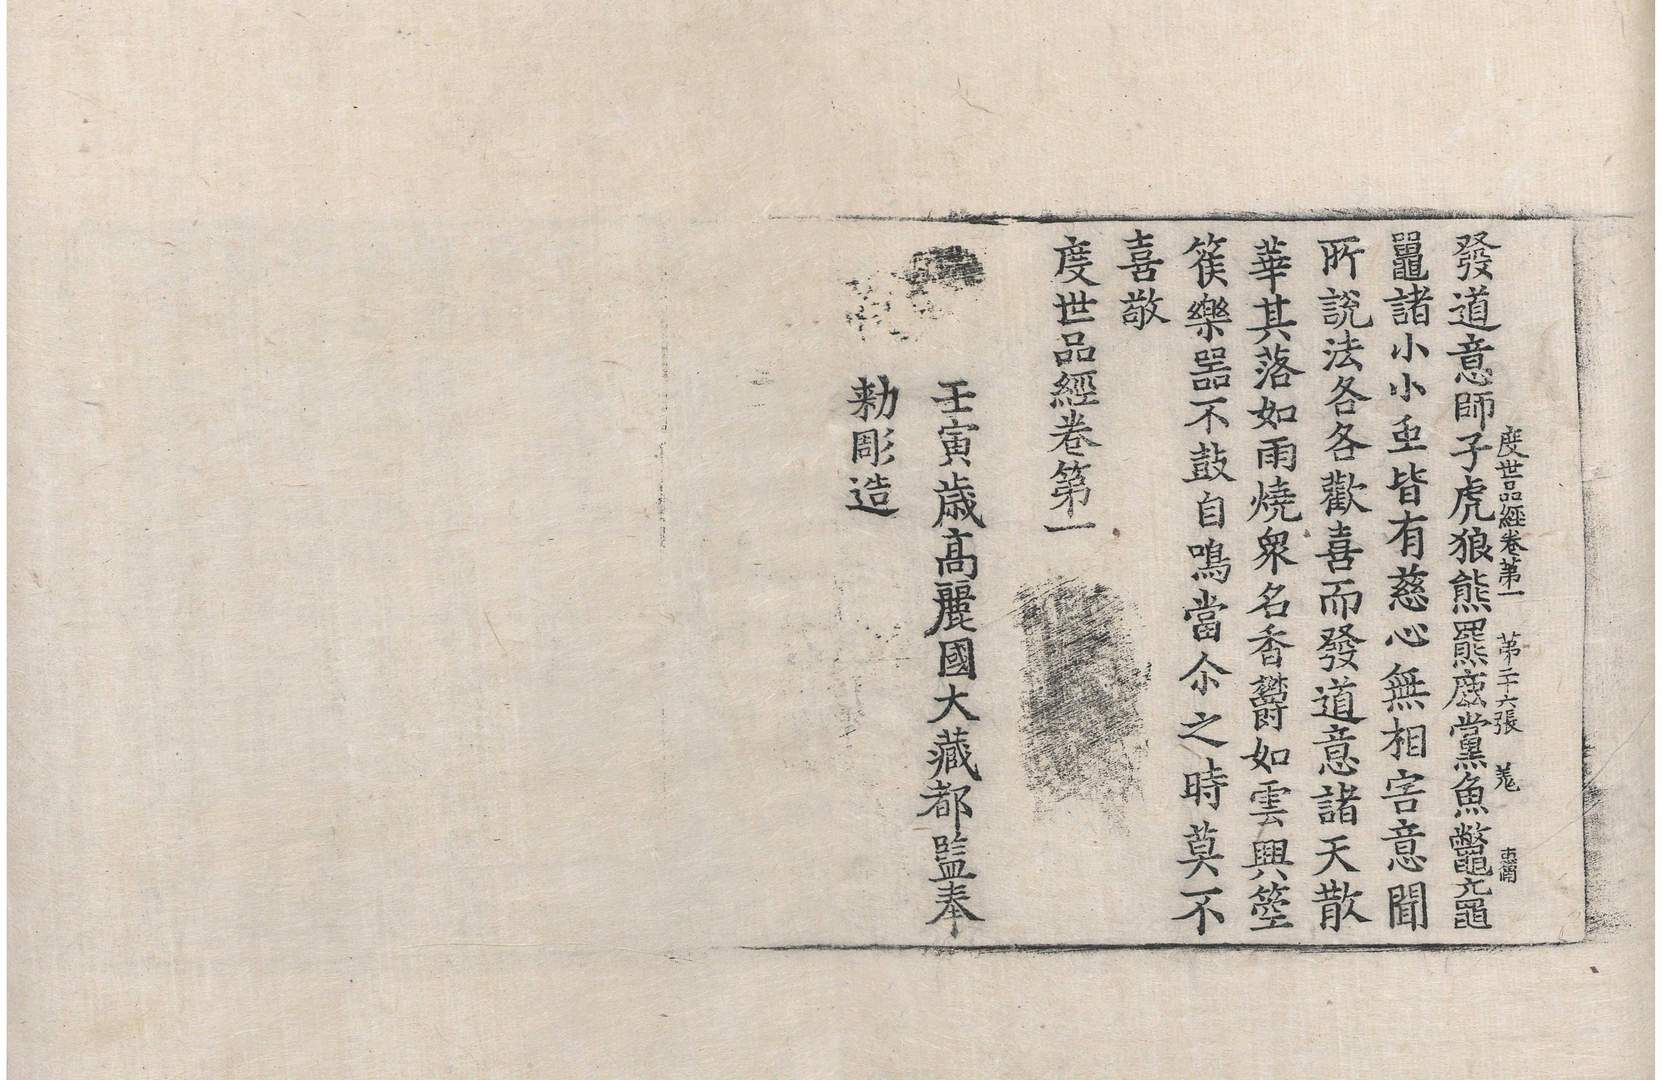 度世品經卷第一 第二十六張 羗
發道意師子虎狼熊羆鹿黨魚鼈黿
鼉諸小小䖝皆有慈心無相害意聞
所說法各各歡喜而發道意諸天散
華其落如雨燒衆名香欝如雲興箜
篌樂器不鼓自鳴當尒之時莫不
喜敬
度世品經卷第一
壬寅歲高麗國大藏都監奉
勑彫造